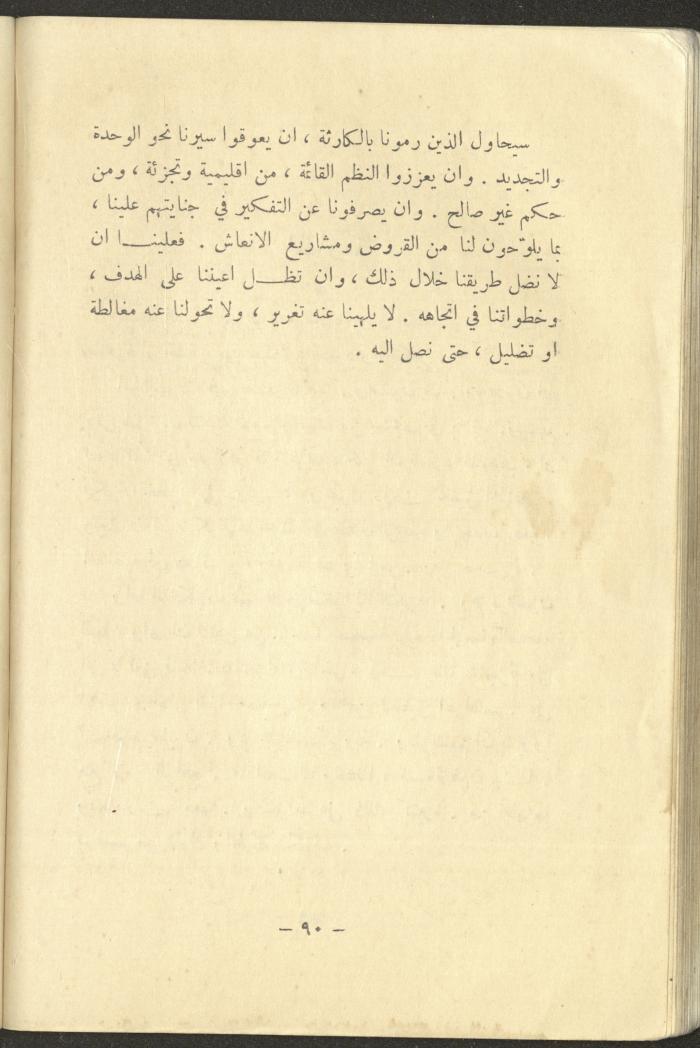 سيحاول الذين رمونا بالكارثة ، ان يعوقوا سيرنا نحو الوحدة
والتجديد . وان يعززوا النظم القائمة ، من اقليمية وتجزئة ، ومن
حكم غير صالح . وان يصرفونا عن التفكير في جنايتهم علينا ،
بما يلوّحون لنا من القروض ومشاريع الانعاش . فعلينا ان
لا نضل طريقنا خلال ذلك ، وان تظل اعيننا على الهدف ،
وخطواتنا في اتجاهه . لا يلهينا عنه تغرير ، ولا تحولنا عنه مغالطة
او تضليل ، حتى نصل اليه .
— ٩٠ —